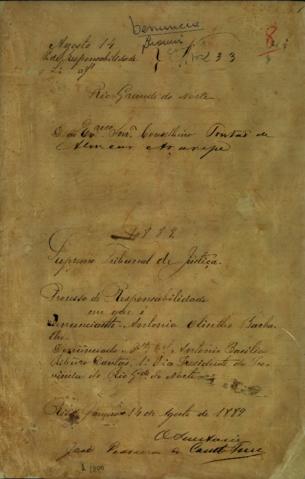 Denuncia
Agosto 14
Responsabilidade
8
233
Rio Grande do Norte
Snr. Conselheiro Tristão de
Alencar Araripe
1889.
Supremo Tribunal de Justiça.
Processo de Responsabilidade
em que é
Denunciante - Antonio Olintho Barba
lho
Denunciado - Antonio Basilio
Ribeiro Dantas, 1º Vice Presidente da Pro-
vincia do Rio Gde do Norte
Rio de Janeiro 14 de Agosto de 1889
O Secretario
José Pereira